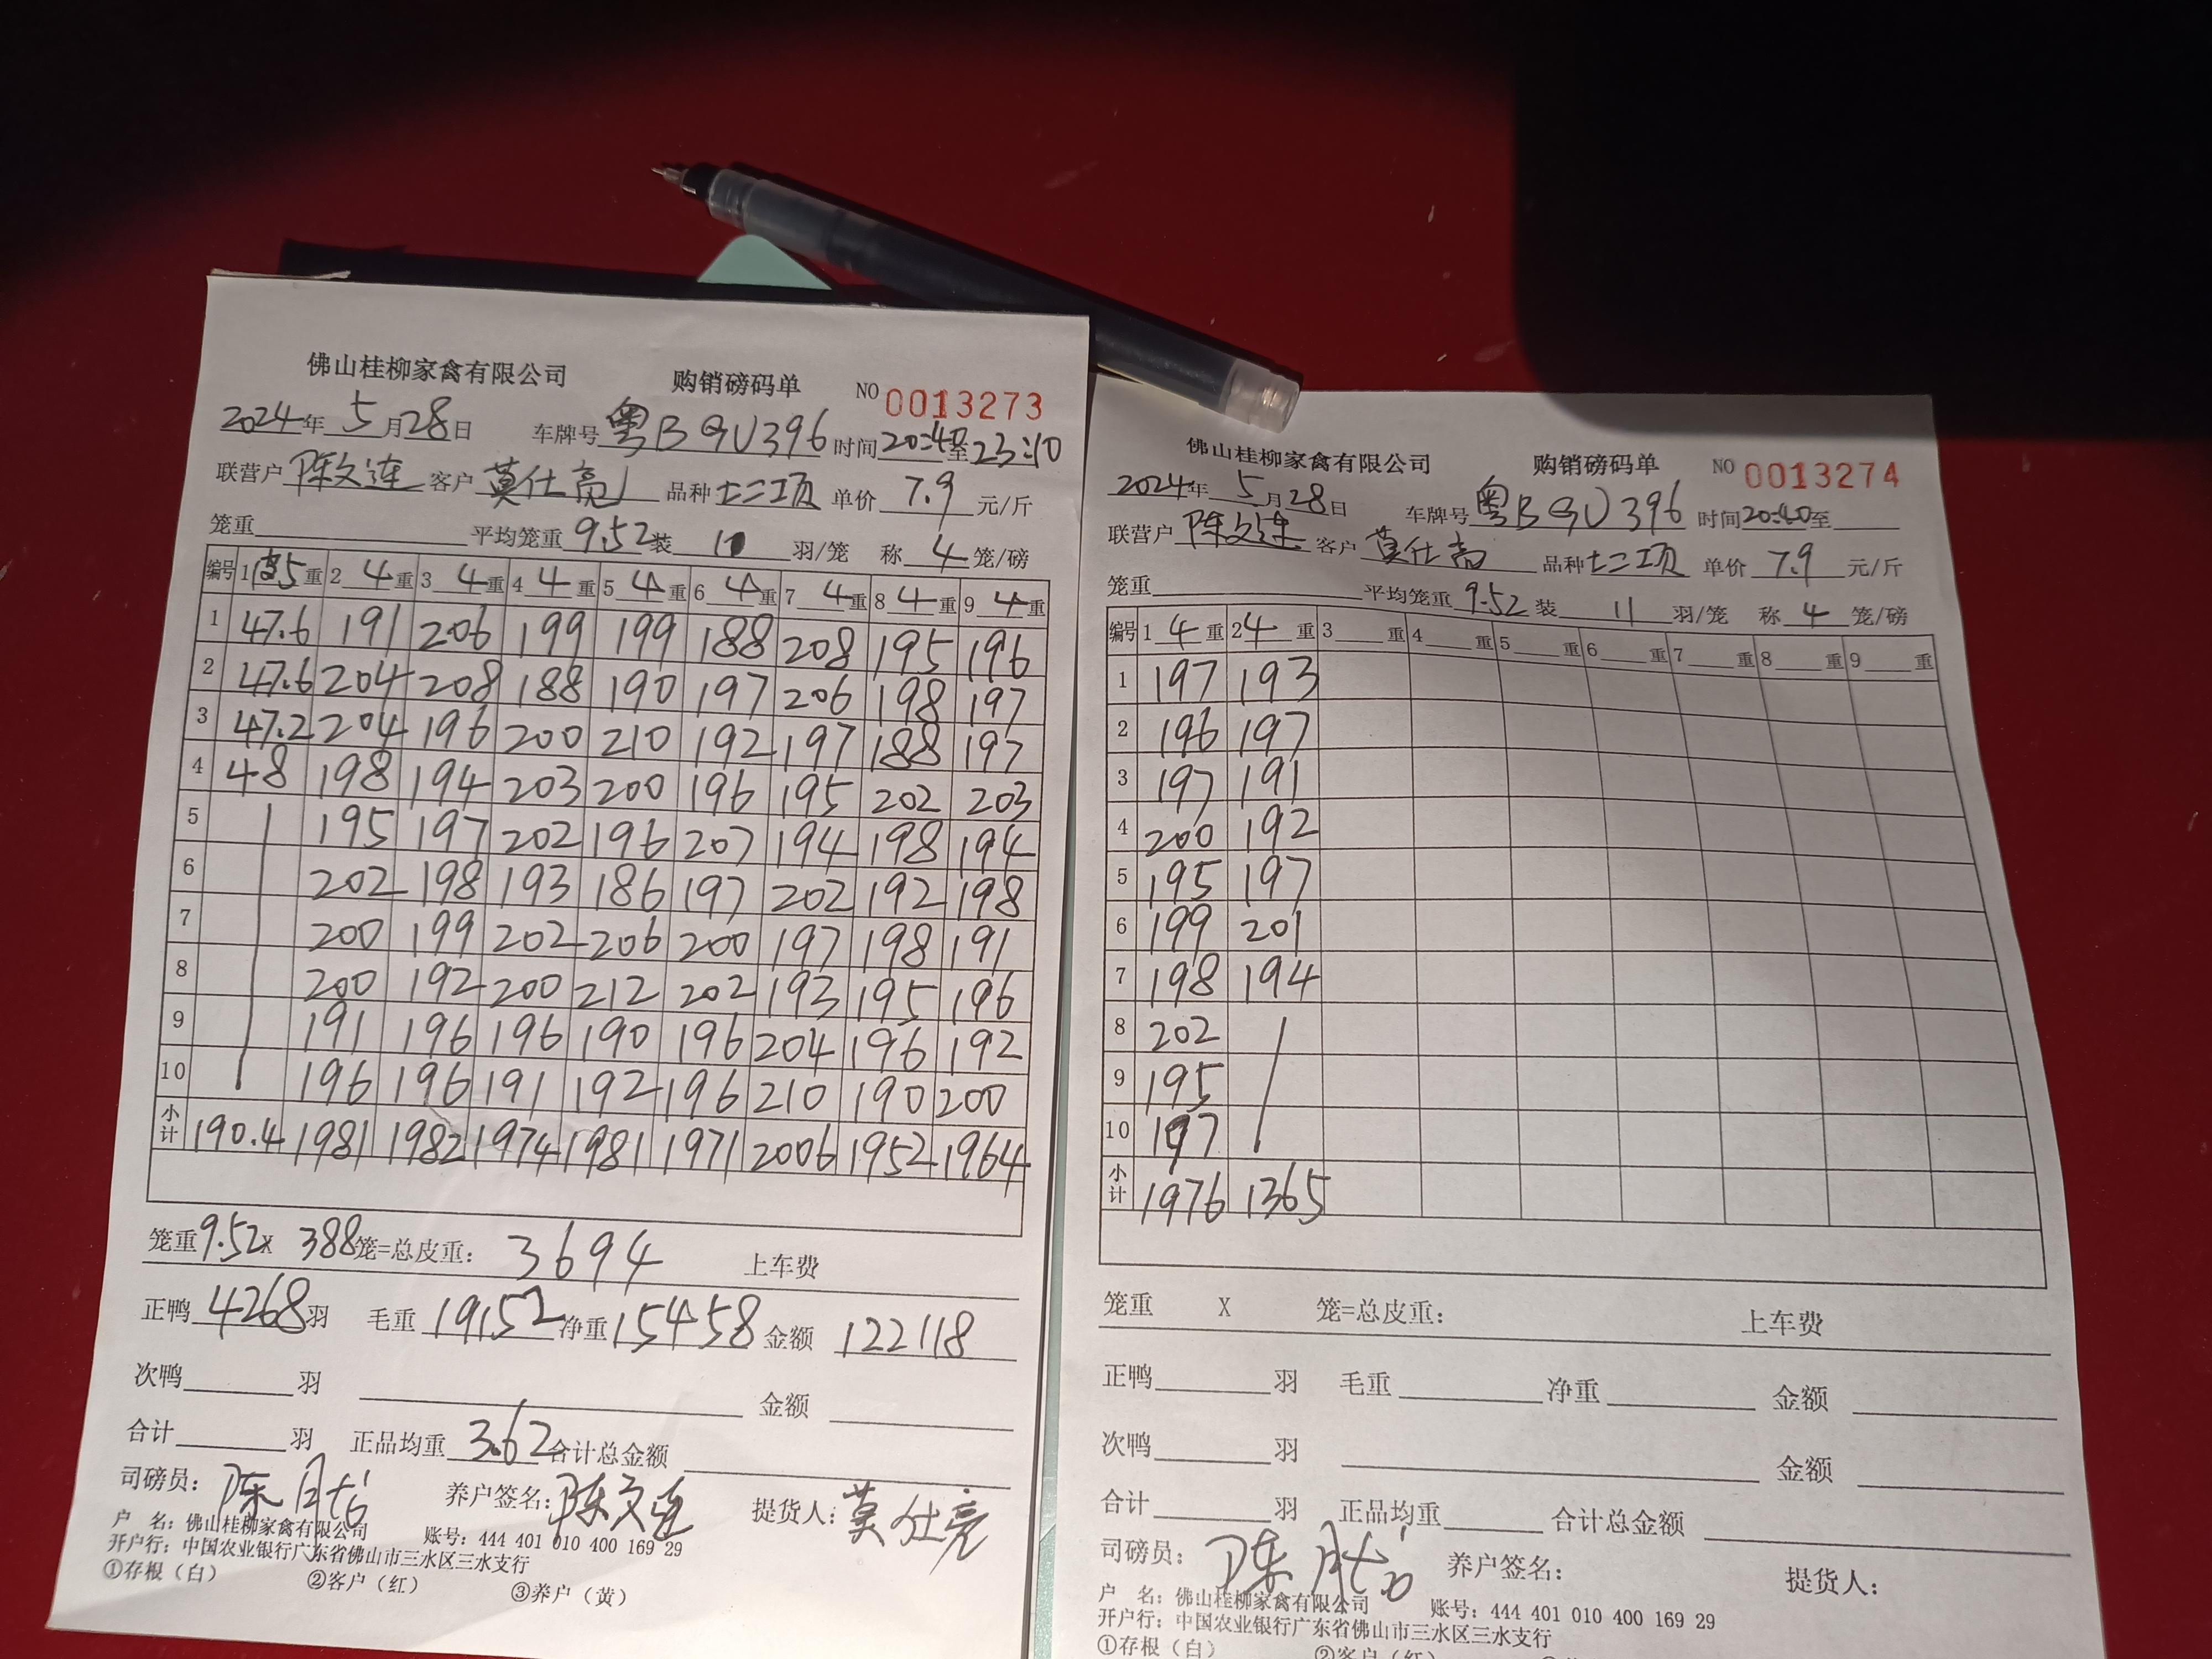 佛山桂柳家禽有限公司 购销磅码单 NO 0013273
2024年 5月28日 车牌号 粤BGU396 时间20:40至23:10
联营户 陈文连 客户 莫仕亮 品种 七二项 单价 7.9 元/斤
笼重 平均笼重 9.52 装 11 羽/笼 称 4 笼/磅
编号 1 皮5重 2 4重 3 4重 4 4重 5 4重 6 4重 7 4重 8 4重 9 4重
1 47.6 191 206 199 199 188 208 195 196
2 47.6 204 208 188 190 197 206 198 197
3 47.2 204 196 200 210 192 197 188 197
4 48 198 194 203 200 196 195 202 203
5 195 197 202 196 207 194 198 194
6 202 198 193 186 197 202 192 198
7 200 199 202 206 200 197 198 191
8 200 192 200 212 202 193 195 196
9 191 196 196 190 196 204 196 192
10 196 196 191 192 196 210 190 200
小计 190.4 1981 1982 1974 1981 1971 2006 1952 1964
笼重9.52X 388笼=总皮重: 3694 上车费
正鸭 4268羽 毛重 19152 净重 15458 金额 122118
次鸭 羽 金额
合计 羽 正品均重 3.62 合计总金额
司磅员: 陈 养户签名: 陈文连 提货人: 莫仕亮
户 名: 佛山桂柳家禽有限公司 账号: 444 401 010 400 169 29
开户行: 中国农业银行广东省佛山市三水区三水支行
①存根(白) ②客户(红) ③养户(黄)
佛山桂柳家禽有限公司 购销磅码单 NO 0013274
2024年 5月28日 车牌号 粤BGU396 时间20:40至
联营户 陈文连 客户 莫仕亮 品种 七二项 单价 7.9 元/斤
笼重 平均笼重 9.52 装 11 羽/笼 称 4 笼/磅
编号 1 4重 2 4重 3 重 4 重 5 重 6 重 7 重 8 重 9 重
1 197 193
2 196 197
3 197 191
4 200 192
5 195 197
6 199 201
7 198 194
8 202
9 195
10 197
小计 1976 1365
笼重 X 笼=总皮重: 上车费
正鸭 羽 毛重 净重 金额
次鸭 羽 金额
合计 羽 正品均重 合计总金额
司磅员: 陈 养户签名: 提货人:
户 名: 佛山桂柳家禽有限公司 账号: 444 401 010 400 169 29
开户行: 中国农业银行广东省佛山市三水区三水支行
①存根(白) ②客户(红)